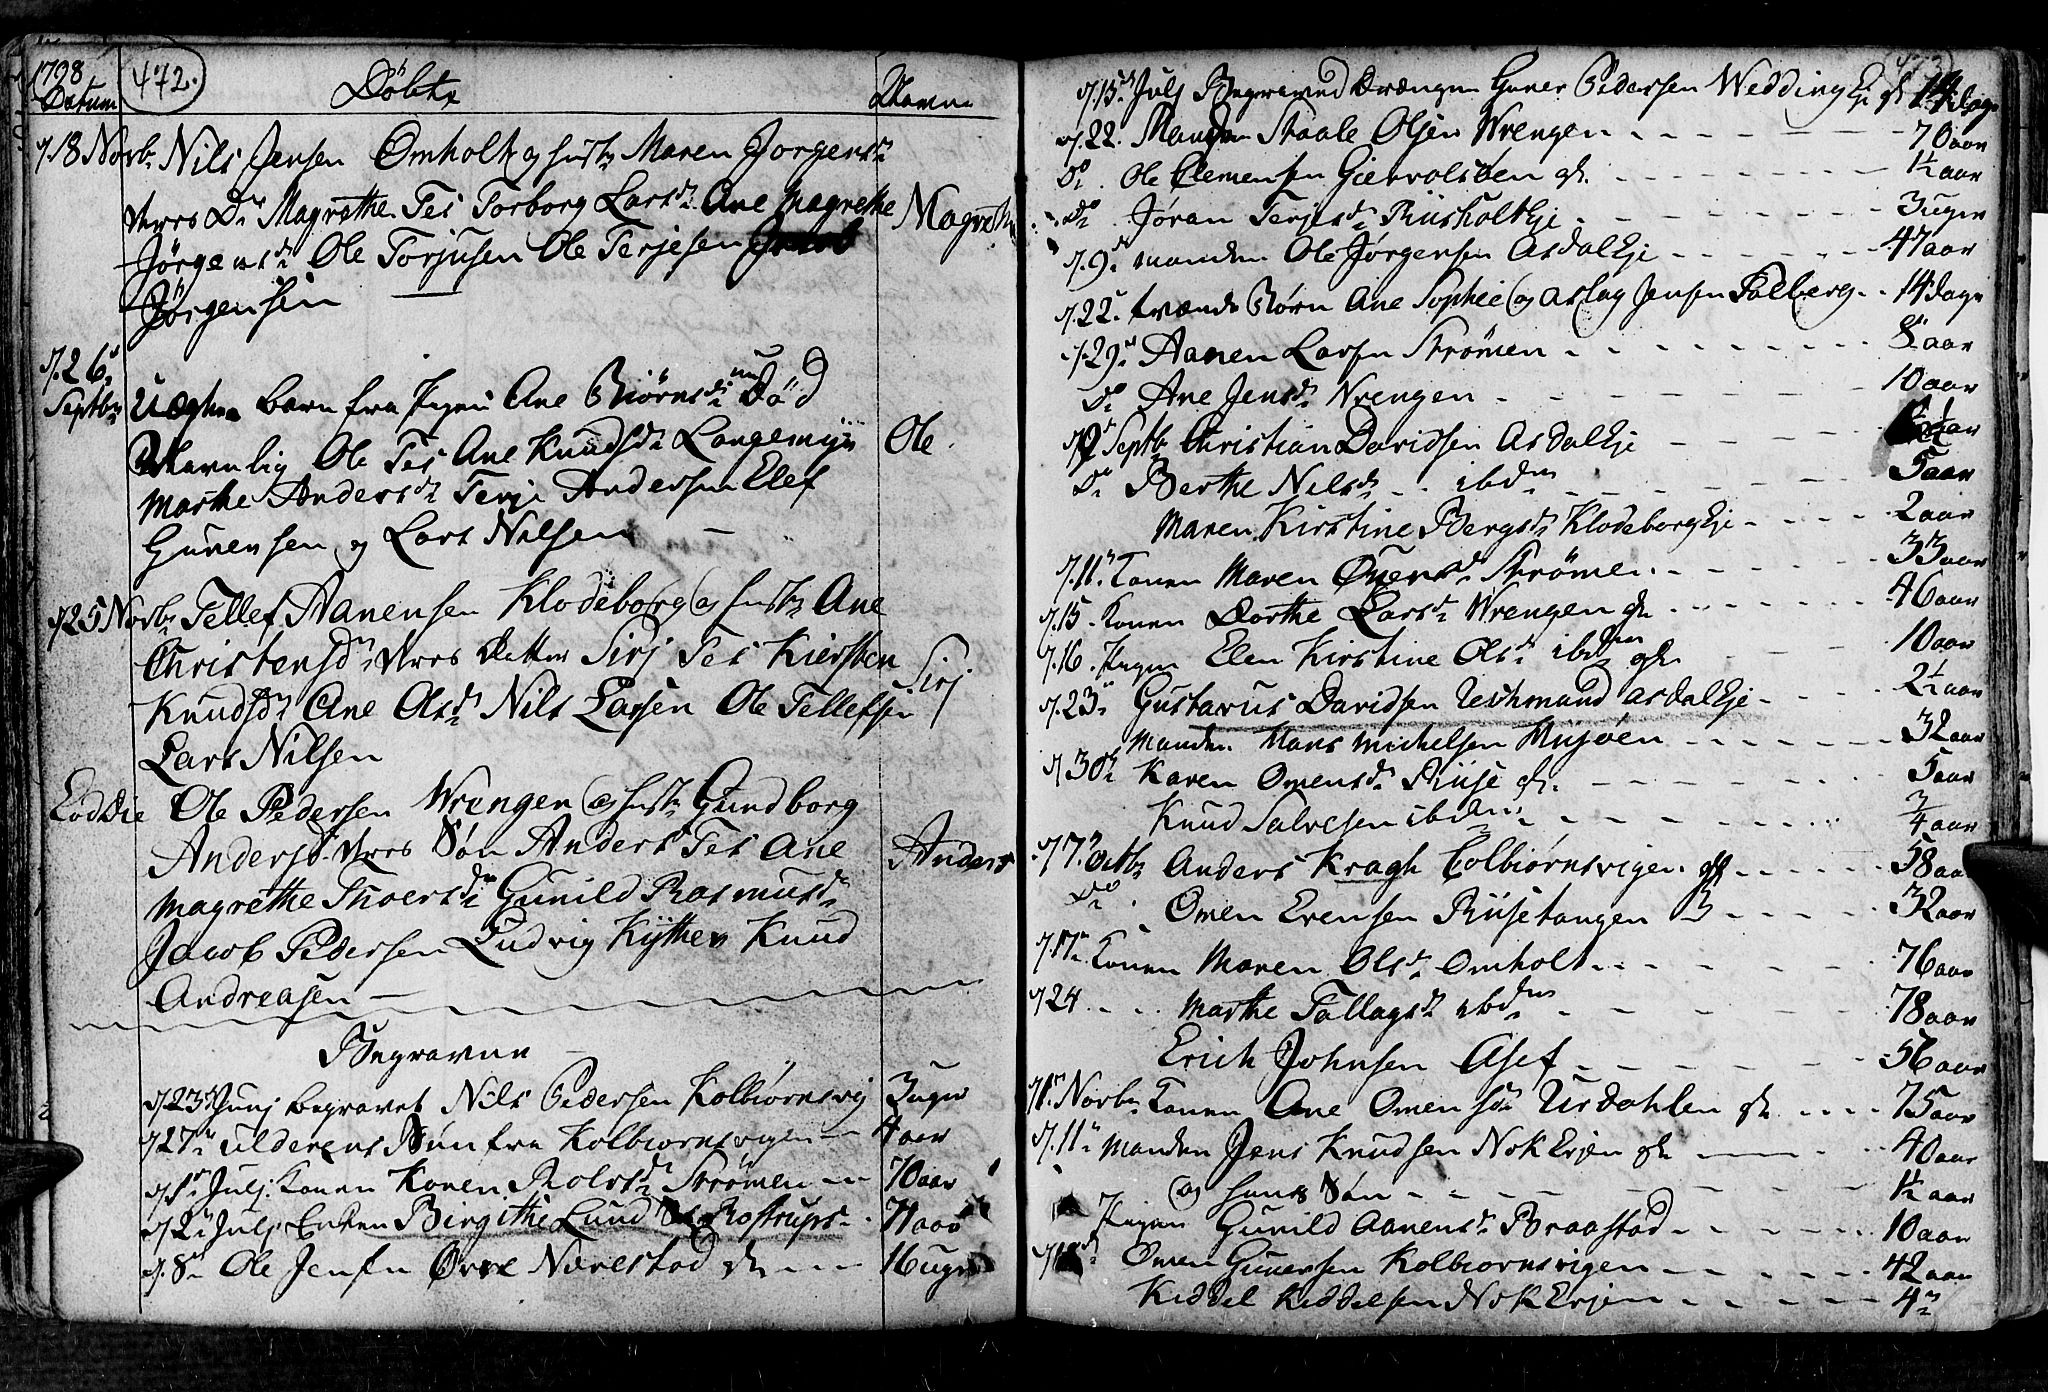 1798
Datum
472.
Døbte
Navne
d 18 Novb: Nils Jensen Omholt og hust: Maren Jørgensd:
Magrethe. Tes Torborg Larsd: Ane Magrethe
Magrethe
Jørgensd: Ole Torjusen Ole Terjesen
Jørgensen
d. 26
Septb: Uægte barn fra Ane Biørnsd: Død
Navnlig Ole Tes Ane Knudsd: Langemyr
Ole.
Marthe Andersd: Terje Andersen Elef
Gunersen og Lars Nilsen
d 25 Novb: Tellef Aanensen Klodeborg og hust: Ane
Christensd: Datter Sirj Tes Kiersten
Sirj
Knudsd: Ane Olsd: Nils Larsen Ole Tellefsen
Lars Nilsen
Eod Die Ole Pedersen Wrengen og hust: Gundborg
Andersd: Søn Anders Tes Ane
Anders
Magrethe Thoersd: Gunild Rasmusd:
Jacob Pedersen Ludvig Kythe Knud
Andreasen
Begravne
d 23 Junj begravet Nils Pedersen Kolbiørnsvig 3 uger
d 27 Søn fra Kolbiørnsvigen 4 aar
d. 1 Julj: Konen Karen Rolvsd: Strømen 70 aar
d 2 Julj Enken Birgithe Lund Rostrups 71 aar
d. 8 Ole Jensen Øvre Nærestad 16 uger
473
d. 15 Julj Begraved Drængen Guner Pedersen Wedding Eje 14 dage
d. 22. Manden Staale Olsen Wrengen 70 aar
Do. Ole Clemensen Giervolsøen 1½ aar
Do Jøran Terjesd: Rusholt Eje 3 uger
d. 9 manden Ole Jørgensen Asdal Eje 47 aar
d. 22. Børn Ane Sophie og Aslag Jensen 14 dage
d. 29 Aanen Larsen Strømen 8 aar
Do Ane Jensd: Wrengen 10 aar
d 9 Septb: Christian Davidsen Asdal Eje aar
Do Berthe Nilsd: ibdm 5 aar
Maren Kirstine Bergsd: Klodeborg Eje 2 aar
d. 11. Konen Maren Strømen 33 aar
d. 15. Konen Dorthe Larsd: Wrengen 46 aar
d. 16. Elen Kirstine Olsd: ibdm 10 aar
d. 23 Gustavus Davidsen Asdal Eje 2½ aar
Manden Hans Michelsen 32 aar
d 30 Karen Omensd: 5 aar
Knud Salvesen ibdm 3/4 aar
d 7. Octb: Anders Kragh Colbiørnsvigen 58 aar
Do. Omen Evensen Risetangen 32 aar
d. 17 Konen Maren Olsd: Omholt 76 aar
d 24 Marthe Tallagsd: ibdm 78 aar
Erich Johnsen Asef 56 aar
Novb: Konen Ane Omensd: Usdahlen 75 aar
d. 11 Manden Jens Knudsen 40 aar
og hans Søn 1½ aar
Gunild Aanensd: Braastad 10 aar
Omen Gunersen Kolbiørnsvigen 42 aar
Kiddel Kiddelsen